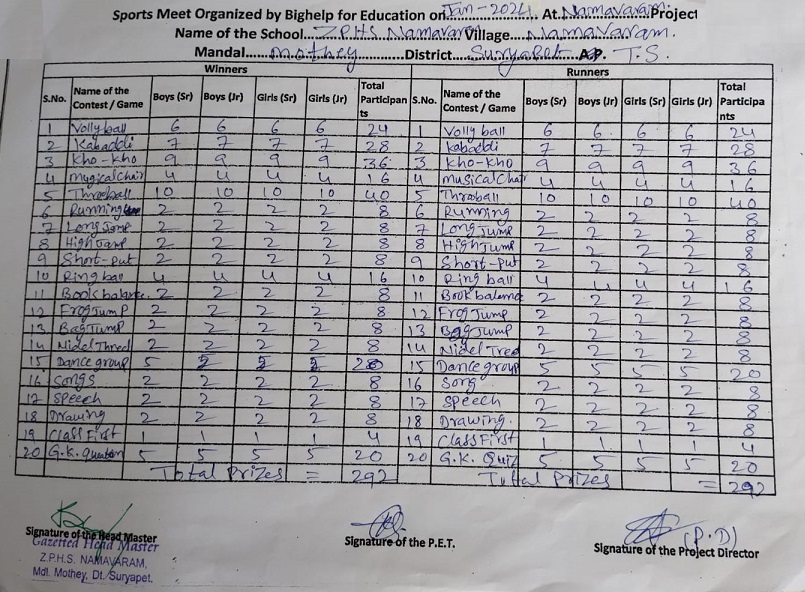 Sports Meet Organized by Bighelp for Education on Jan-2024 At Namavaram Project
Name of the School Z.P.H.S Namavaram Village Namavaram.
Mandal mothey District Suryapet A.P. T.S.
Winners Runners
S.No. Name of the Contest / Game Boys (Sr) Boys (Jr) Girls (Sr) Girls (Jr) Total Participants S.No. Name of the Contest / Game Boys (Sr) Boys (Jr) Girls (Sr) Girls (Jr) Total Participants
1 Volly ball 6 6 6 6 24 1 Volly ball 6 6 6 6 24
2 Kabaddi 7 7 7 7 28 2 Kabaddi 7 7 7 7 28
3 Kho-Kho 9 9 9 9 36 3 Kho-Kho 9 9 9 9 36
4 Mugical Chair 4 4 4 4 16 4 musical Chair 4 4 4 4 16
5 Throball 10 10 10 10 40 5 Throball 10 10 10 10 40
6 Running 2 2 2 2 8 6 Running 2 2 2 2 8
7 Long Jump 2 2 2 2 8 7 Long Jump 2 2 2 2 8
8 High Jump 2 2 2 2 8 8 High Jump 2 2 2 2 8
9 Short-put 2 2 2 2 8 9 Short-put 2 2 2 2 8
10 Ring ball 4 4 4 4 16 10 Ring ball 4 4 4 4 16
11 Book balance. 2 2 2 2 8 11 Book balance 2 2 2 2 8
12 Frog Jump 2 2 2 2 8 12 Frog Jump 2 2 2 2 8
13 Bag Jump 2 2 2 2 8 13 Bag Jump 2 2 2 2 8
14 Nidel Thred 2 2 2 2 8 14 Nidel Tred 2 2 2 2 8
15 Dance group 5 5 5 5 20 15 Dance group 5 5 5 5 20
16 Songs 2 2 2 2 8 16 Song 2 2 2 2 8
17 Speech 2 2 2 2 8 17 Speech 2 2 2 2 8
18 Drawing 2 2 2 2 8 18 Drawing. 2 2 2 2 8
19 Class First 1 1 1 1 4 19 Class First 1 1 1 1 4
20 G.K. 5 5 5 5 20 20 G.K. Quiz 5 5 5 5 20
Total Prizes = 292 Total Prizes = 292
(P.D)
Signature of the Head Master Signature of the P.E.T. Signature of the Project Director
Gazetted Head Master
Z.P.H.S. NAMAVARAM,
Mdl. Mothey, Dt. Suryapet.